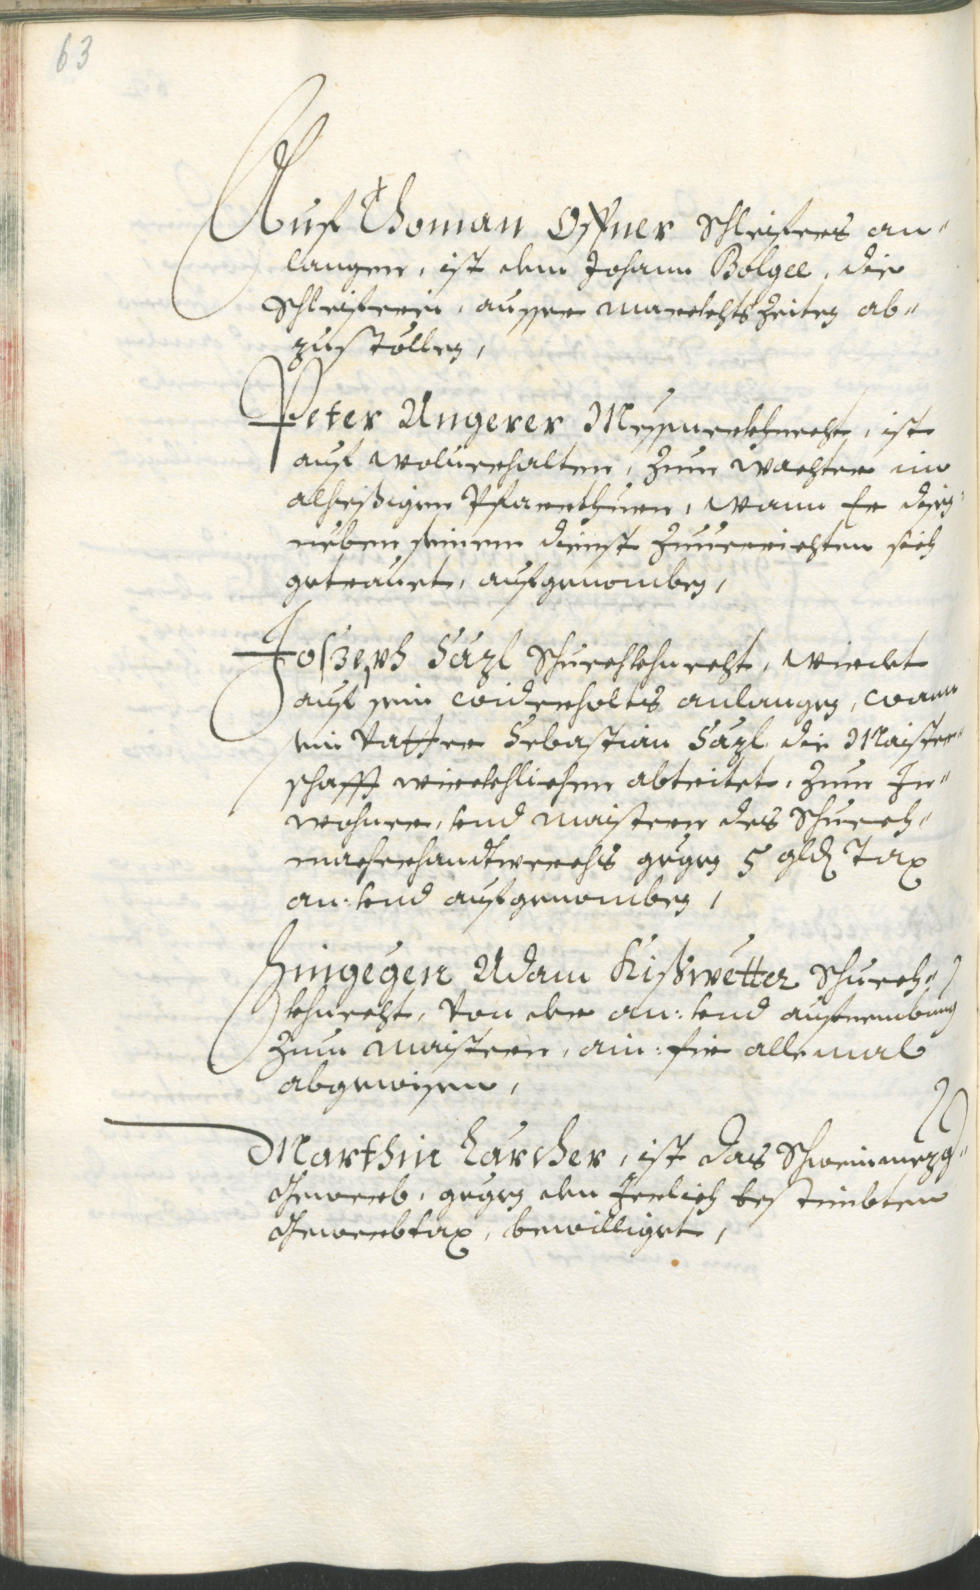 63
Auf Thoman Offner Schleifers an„
langen, ist dem Johann Bolgee, die
Schleiferei, ausser marckhts Zeiten ab„
zustöllen,
Peter Ungerer Messnerkhnecht, ist
auf wolverhalten, zum wachter im
alhießigen Pfarrthurn, wann Er disen
neben seinem dienst zuverrichten sich
getrauet, aufgenomben,
Joszeph Säzl Schuechkhnecht, wirdet
auf sein widerholtes anlangen, wann
sein Vatter Sebastian Säzl die Maister„
schafft würckhlichen abtritet, zum In„
wohner, und maistern des Schuech„
macherhandtwerchs gegen 5 gld Tax
an: und aufgenomben,
Hingegen Adam Kißwetter Schuech„
khnecht, von der an: und aufnembung
zum maistern, ain: für allemal
abgewisen,
Marthin Larcher, ist das Schweinmezg„
Gewerb, gegen den Jerlich bestimbten
Gewerbtax, bewilliget,